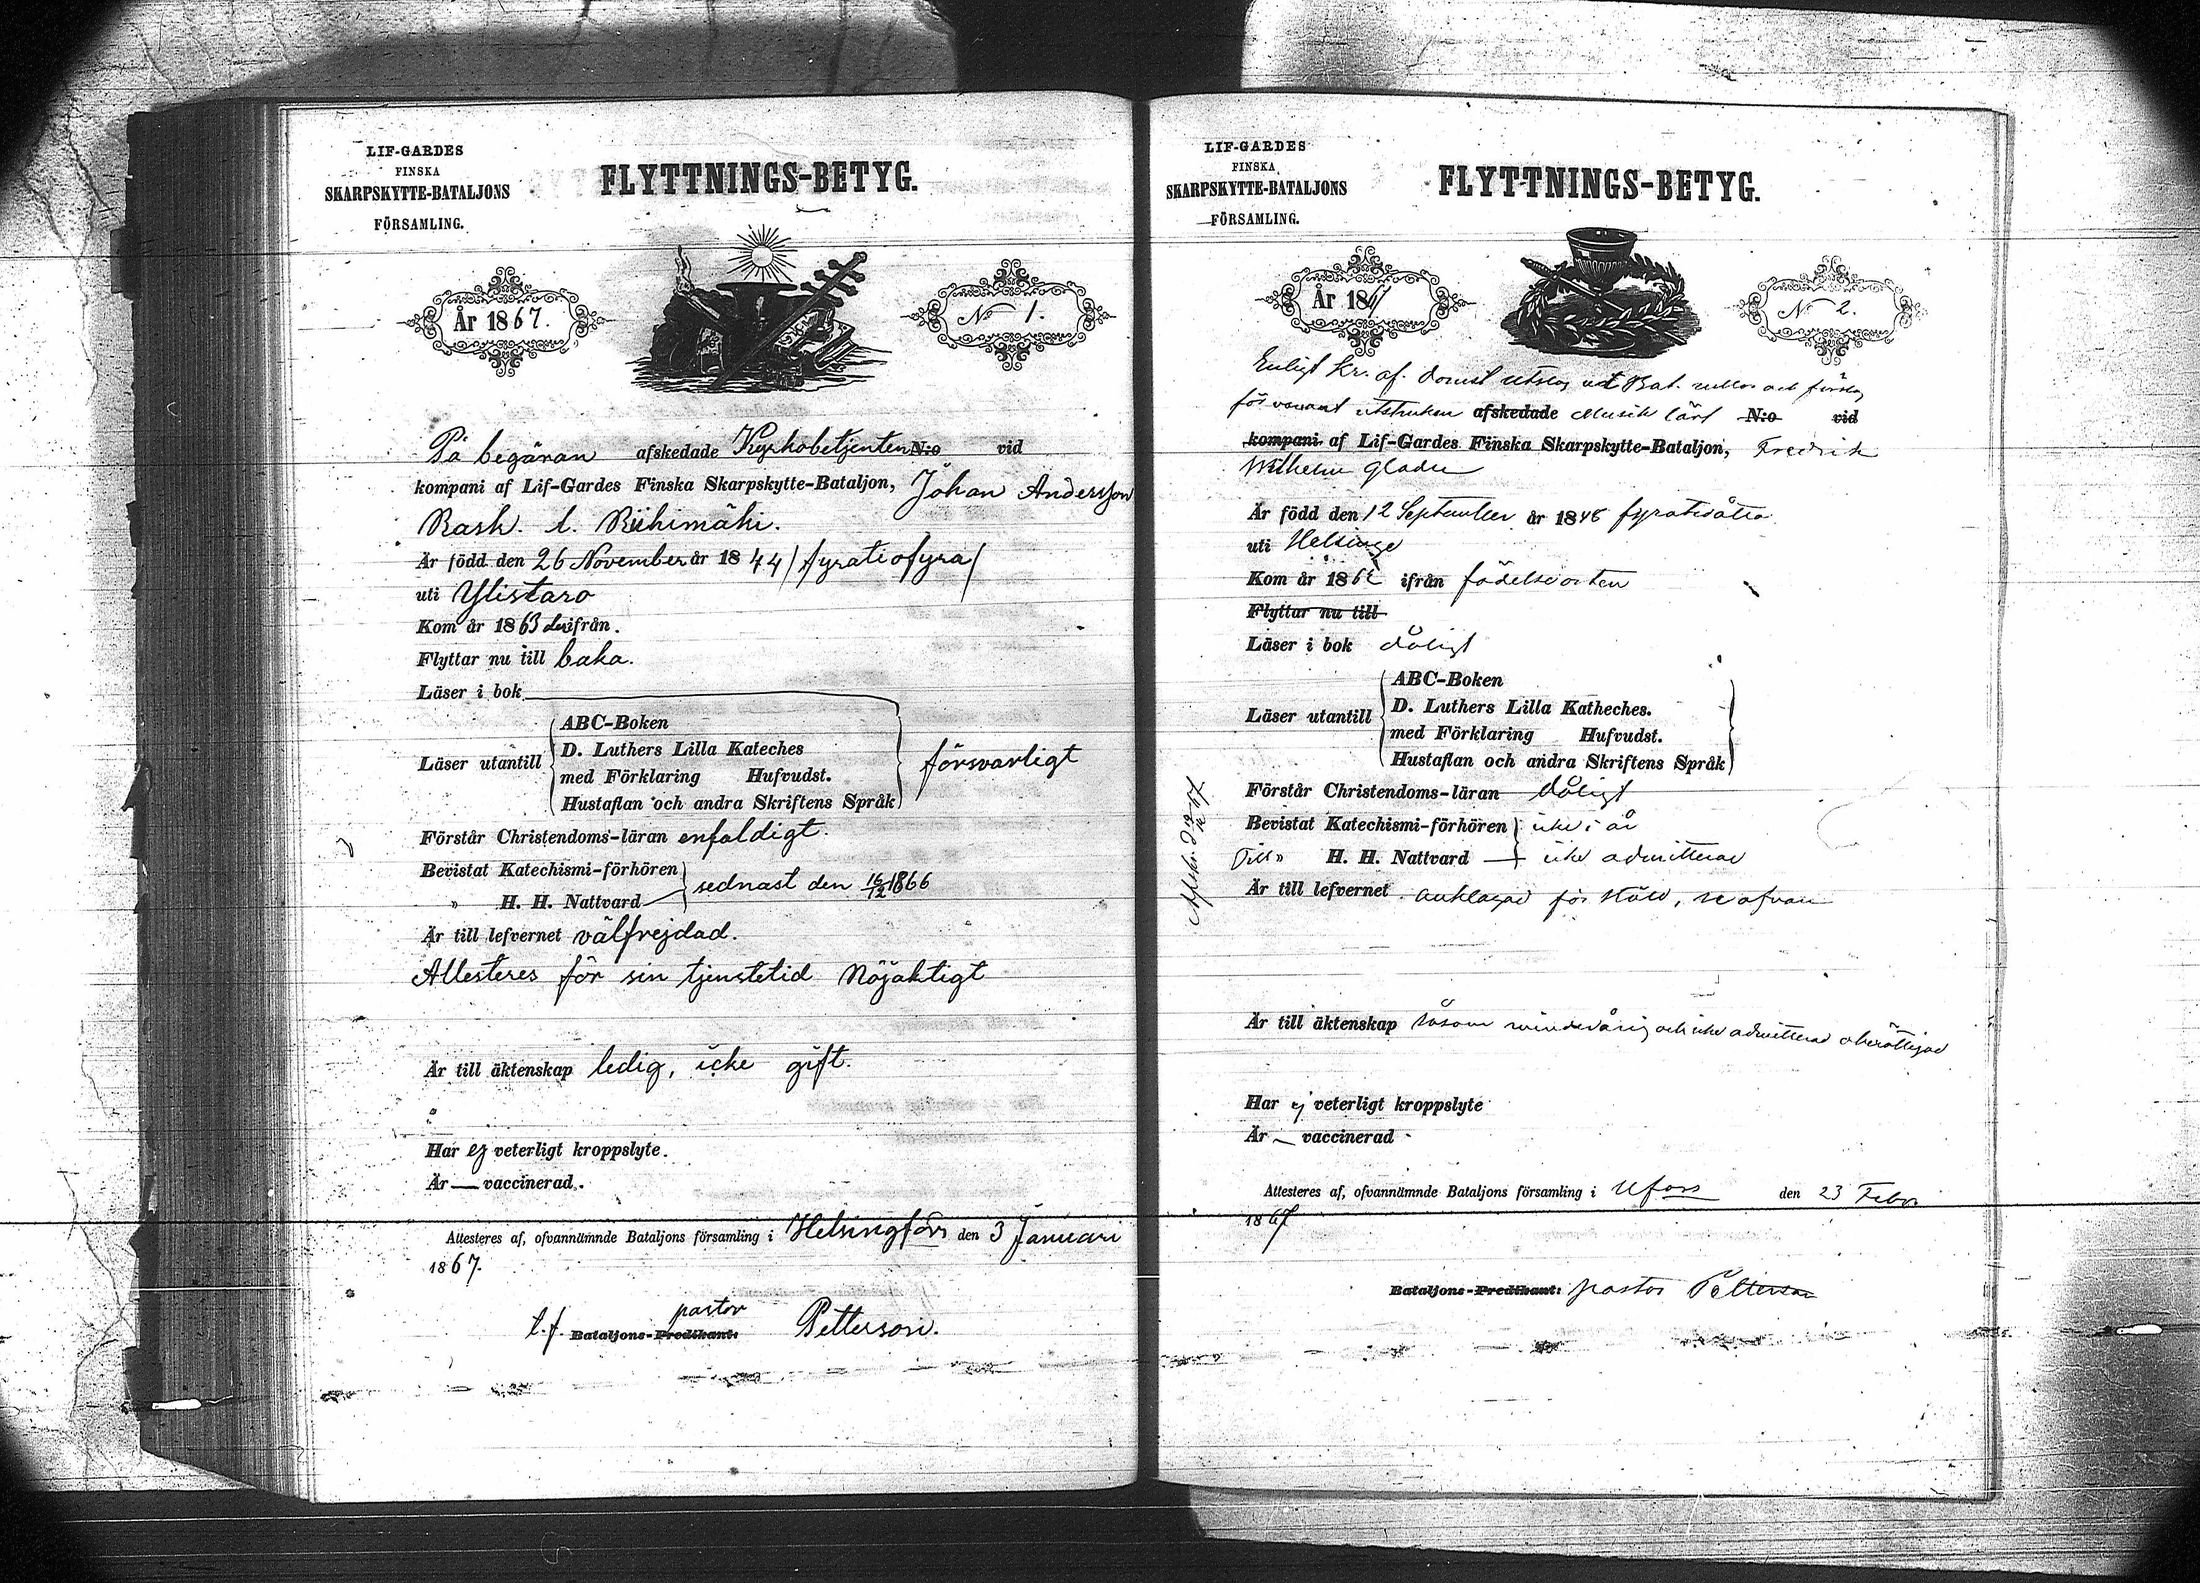 LIF-GARDES
FINSKA
SKARPSKYTTE-BATALJONS
FÖRSAMLING.
FLYTTNINGS-BETYG.
År 1867.
No 1.
På begäran afskedade Kyrkobetjenten N:o vid
kompani af Lif-Gardes Finska Skarpskytte-Bataljon, Johan Andersson
Rask l. Riihimäki.
Är född den 26 November år 1844 / fyratiofyra /
uti Ylistaro
Kom år 1863 derifrån.
Flyttar nu till baka.
Läser i bok
Läser utantill
ABC-Boken
D. Luthers Lilla Kateches
med Förklaring Hufvudst.
Hustaflan och andra Skriftens Språk
försvarligt
Förstår Christendoms-läran enfaldigt.
Bevistat Katechismi-förhören
" H. H. Nattvard
sednast den 16/12 1866
Är till lefvernet välfrejdad.
Attesteres för sin tjenstetid Nöjaktigt
Är till äktenskap ledig, icke gift.
Har ej veterligt kroppslyte.
Är — vaccinerad.
Attesteres af, ofvannämnde Bataljons församling i Helsingfors den 3 Januari
1867.
t.f. pastor
Bataljons-Predikant: Petterson.
LIF-GARDES
FINSKA
SKARPSKYTTE-BATALJONS
FÖRSAMLING.
FLYTTNINGS-BETYG.
År 1867
No 2.
Enligt Kr. af. domst utslag ut Bat. rullor och
försvant utstruken afskedade Musik lärl N:o vid
kompani af Lif-Gardes Finska Skarpskytte-Bataljon, Fredrik
Wilhelm Glader
Är född den 12 September år 1848 fyratioåtta
uti Helsinge
Kom år 186 ifrån födelseorten
Flyttar nu till
Läser i bok dåligt
Läser utantill
ABC-Boken
D. Luthers Lilla Katheches.
med Förklaring Hufvudst.
Hustaflan och andra Skriftens Språk
Förstår Christendoms-läran dåligt
Bevistat Katechismi-förhören icke i år
Till " H. H. Nattvard icke admitterad
Är till lefvernet anklagad för stöld, se ofvan
Är till äktenskap såsom minderårig och icke admitterad oberättigad
Har ej veterligt kroppslyte
Är — vaccinerad
Attesteres af, ofvannämnde Bataljons församling i Hfors den 23 Febr.
1867
Bataljons-Predikant: pastor Petterson